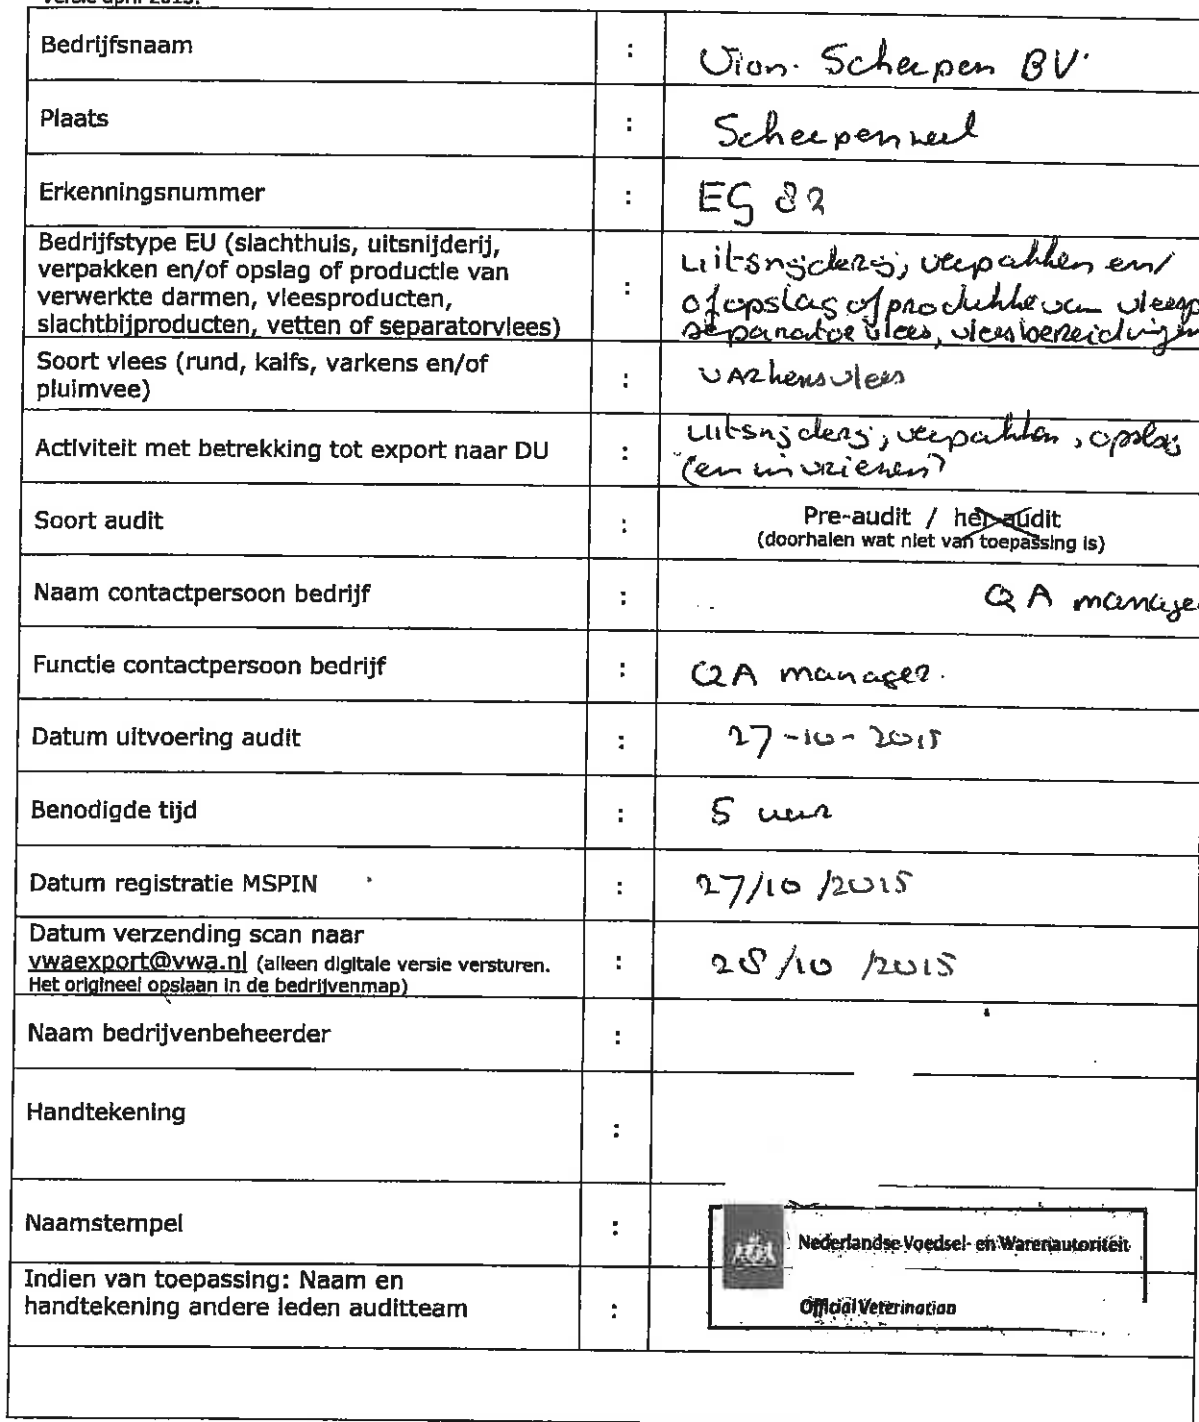 versie april 2015.
Bedrijfsnaam : Vion Scherpen BV
Plaats : Scherpenzeel
Erkenningsnummer : EG 82
Bedrijfstype EU (slachthuis, uitsnijderij,
verpakken en/of opslag of productie van
verwerkte darmen, vleesproducten,
slachtbijproducten, vetten of separatorvlees) :
uitsnijderij, verpakken en/
of opslag of produktie van vleesp
separator vlees, vleesbereidingen
Soort vlees (rund, kalfs, varkens en/of
pluimvee) : varkensvlees
Activiteit met betrekking tot export naar DU :
uitsnijderij, verpakken, opslag
(en invriezen)
Soort audit : Pre-audit / her-audit
(doorhalen wat niet van toepassing is)
Naam contactpersoon bedrijf : QA manage
Functie contactpersoon bedrijf : QA manager.
Datum uitvoering audit : 27-10-2015
Benodigde tijd : 5 uur
Datum registratie MSPIN : 27/10/2015
Datum verzending scan naar
vwaexport@vwa.nl (alleen digitale versie versturen.
Het origineel opslaan in de bedrijvenmap) : 28/10/2015
Naam bedrijvenbeheerder :
Handtekening :
Naamstempel :
Nederlandse Voedsel- en Warenautoriteit
Indien van toepassing: Naam en
handtekening andere leden auditteam :
Official Veterinarian